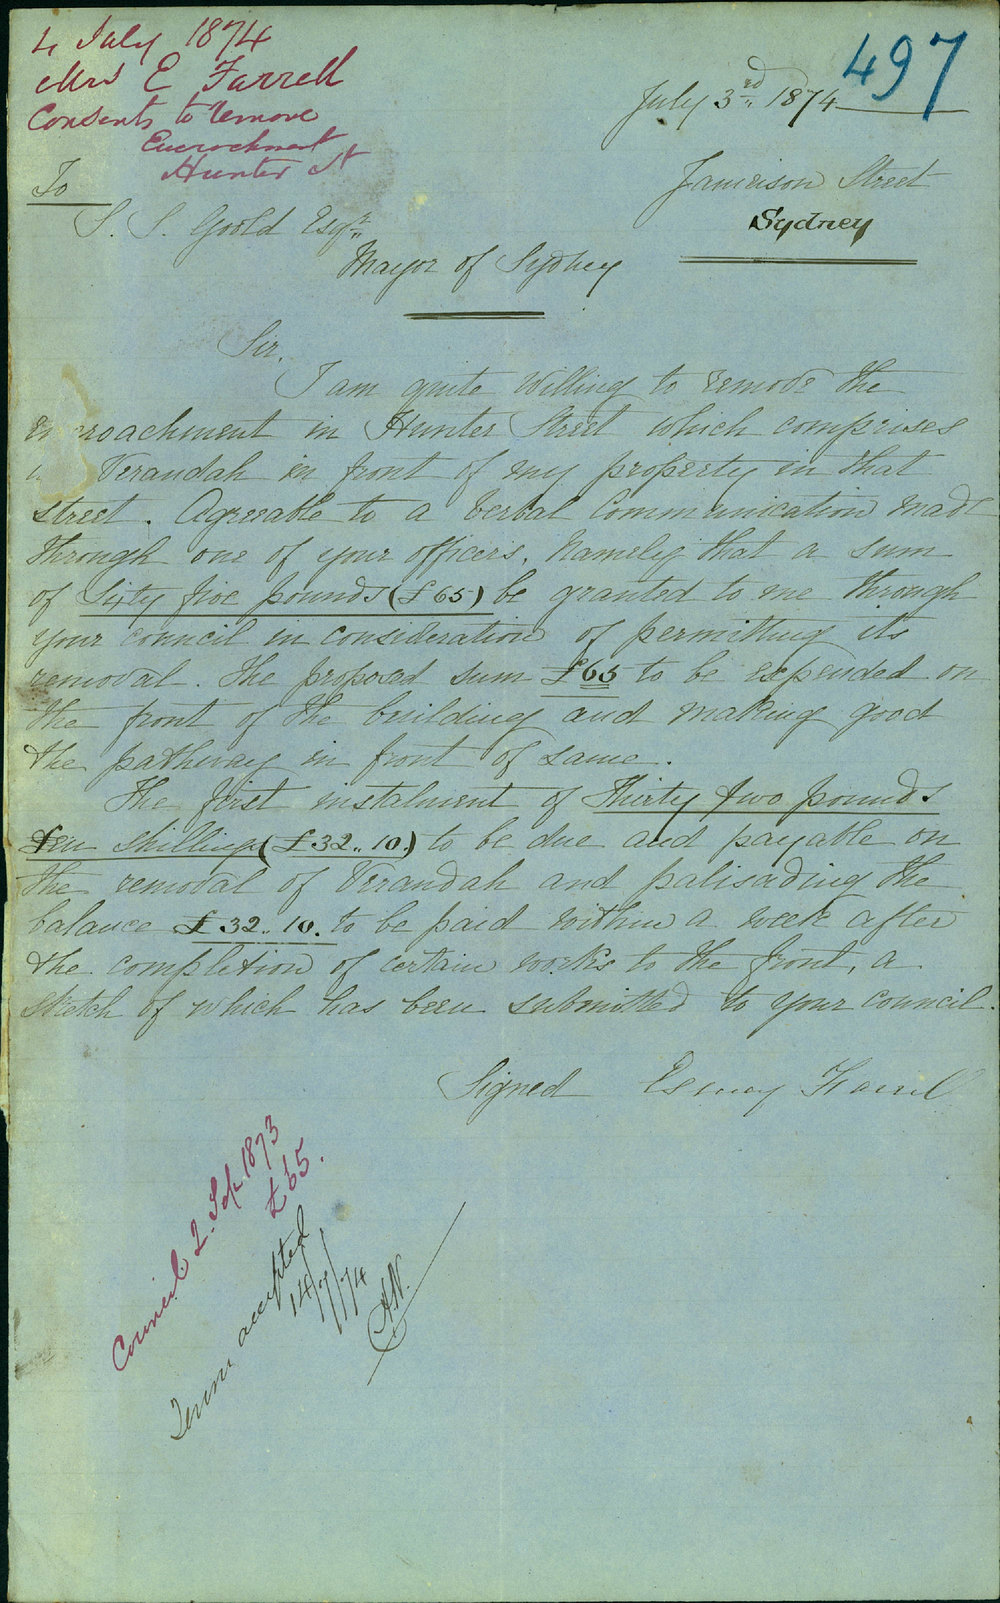 4 July 1874
Mrs E Farrell
Consents to remove
Encroachment
Hunter St
497
July 3rd 1874
Jamieson Street
Sydney
To
S. S. Goold Esqr
Mayor of Sydney
Sir,
I am quite willing to remove the
En roachment in Hunter Street which comprises
Verandah in front of my property in that
street. Agreeable to a verbal Communication made
through one of your officers. Namely that a sum
of Sixty five pounds (£65) be granted to me through
your council in consideration of permitting its
removal. The proposed sum £65 to be expended on
the front of the building and making good
the pathway in front of same.
The first instalment of Thirty two pounds
ten shillings (£32.. 10.) to be due and payable on
the removal of Verandah and palisading the
balance £32.. 10. to be paid within a week after
the completion of certain works to the front, a
sketch of which has been submitted to your Council.
Signed Farrell
Council 2. Sep 1873
£65.
Terms accepted
14/7/74